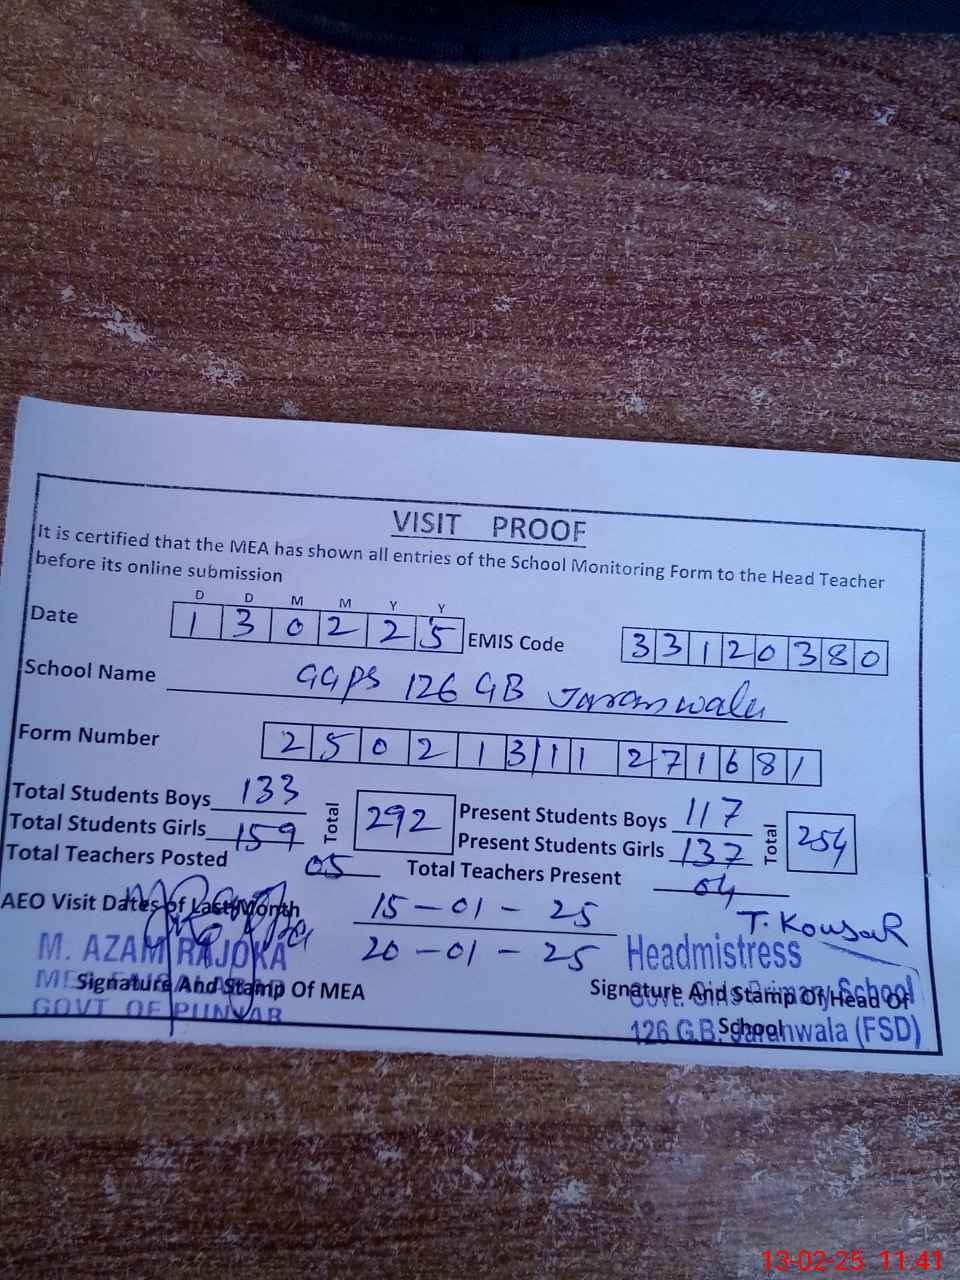 VISIT PROOF
It is certified that the MEA has shown all entries of the School Monitoring Form to the Head Teacher
before its online submission
D D M M Y Y
Date 1 3 0 2 2 5 EMIS Code 3 3 1 2 0 3 8 0
School Name GGPS 126 GB Jaranwala
Form Number 2 5 0 2 1 3 1 1 2 7 1 6 8 1
Total Students Boys 133 Total 292 Present Students Boys 117 Total 254
Total Students Girls 159 Present Students Girls 137
Total Teachers Posted 05 Total Teachers Present 04
AEO Visit Dates of Last Month 15-01-25
20-01-25
T. KousaR
M. AZAM RAJOKA
GOVT OF PUNJAB
Signature And Stamp Of MEA
Headmistress
Govt. Girls Primary School
126 G.B. Jaranwala (FSD)
Signature And Stamp Of Head Of
School
13-02-25 11:41